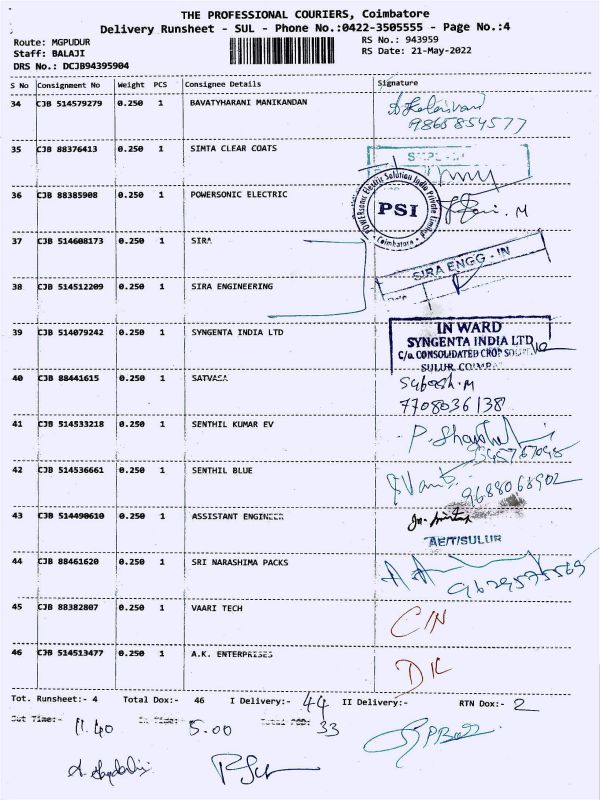 THE PROFESSIONAL COURIERS, Coimbatore
Delivery Runsheet - SUL - Phone No.:0422-3505555 - Page No.:4
Route: MGPUDUR RS No.: 943959
Staff: BALAJI RS Date: 21-May-2022
DRS No.: DCJB94395904
S No Consignment No Weight PCS Consignee Details Signature
34 CJB 514579279 0.250 1 BAVATYHARANI MANIKANDAN
9865854577
35 CJB 88376413 0.250 1 SIMTA CLEAR COATS
36 CJB 88385908 0.250 1 POWERSONIC ELECTRIC
POWERsonic Electric Solution India Private Limited
PSI
Coimbatore
37 CJB 514608173 0.250 1 SIRA
SIRA ENGG - IN
38 CJB 514512209 0.250 1 SIRA ENGINEERING
Date
39 CJB 514079242 0.250 1 SYNGENTA INDIA LTD
IN WARD
SYNGENTA INDIA LTD
C/o CONSOLIDATED CROP
SULUR, COIMBAT
40 CJB 88441615 0.250 1 SATVASA
Subash.M
7708036138
41 CJB 514533218 0.250 1 SENTHIL KUMAR EV
42 CJB 514536661 0.250 1 SENTHIL BLUE
9688068902
43 CJB 514490610 0.250 1 ASSISTANT ENGINEER
AE/T/SULUR
44 CJB 88461620 0.250 1 SRI NARASHIMA PACKS
9629575569
45 CJB 88382807 0.250 1 VAARI TECH
C/N
46 CJB 514513477 0.250 1 A.K. ENTERPRISES
DK
Tot. Runsheet:- 4 Total Dox:- 46 I Delivery:- 44 II Delivery:- RTN Dox:- 2
Out Time:- 11.40 In Time:- 5.00 Total POD: 33